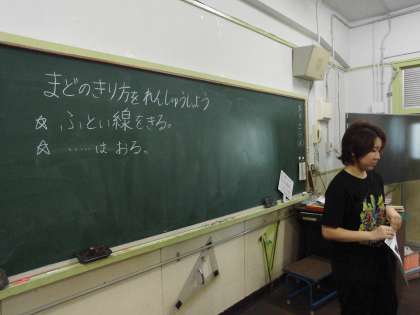 まどのきり方をれんしゅうしよう
☆ ふとい線をきる。
☆ ……は おる。